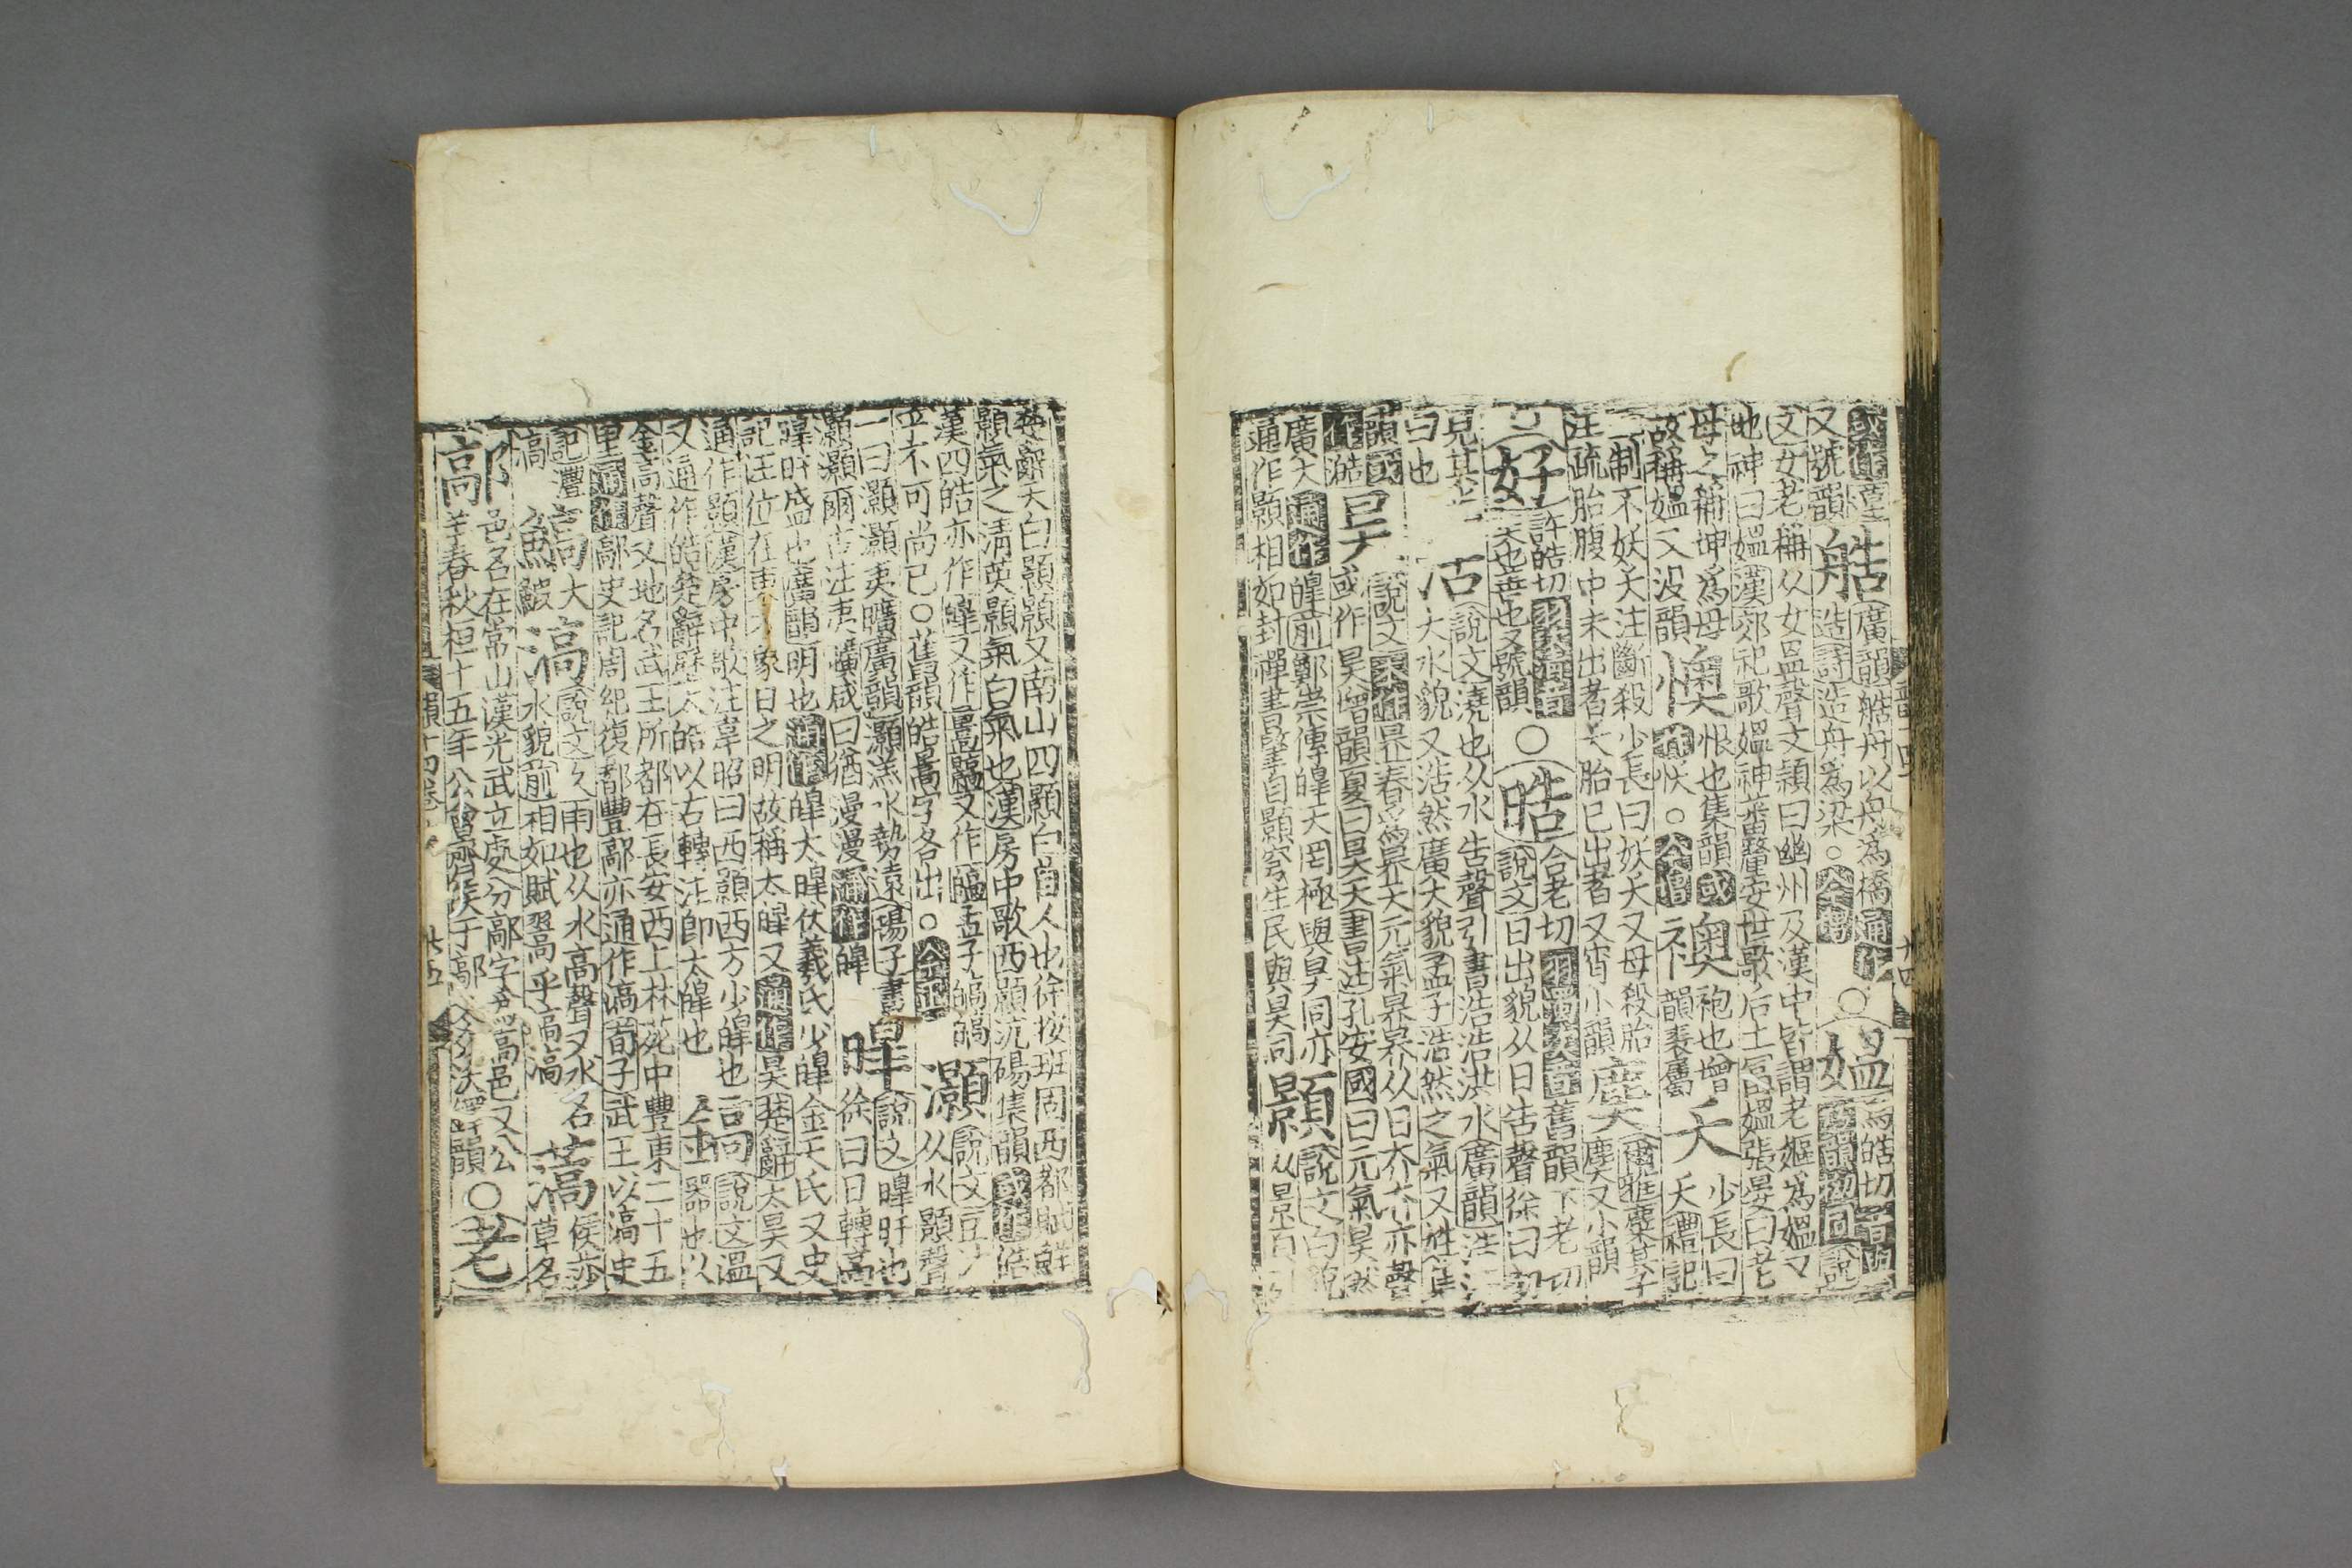 或作艁
又號韻艁廣韻艁舟以舟為橋通作
造詩造舟為梁○今增○媼烏皓切音與
文女老稱从女𥁕聲文穎曰幽州及漢中皆謂老嫗為媼又
地神曰媼漢郊祀歌媼神蕃釐安世歌后土富媼張晏曰老
母之稱坤為母懊恨也集韻或
故稱媼又沒韻作㤇○今增襖袍也增韻裘屬夭少長曰夭禮記
王制不妖夭注斷殺少長曰妖夭又母殺胎
注疏胎腹中未出者夭胎已出者又宵小韻麌爾雅麋其子麌又小韻
好許皓切羽次濁音
美也善也又號韻○晧合老切羽濁次音舊韻下老切
說文日出貌从日告聲徐曰初
見其光
曰也浩說文澆也从水告聲引書浩浩洪水廣韻浩浩
大水貌又浩然廣大貌孟子浩然之氣又姓集
韻或
作澔昊說文本作昦春為昦天元氣昦昦从日夰夰亦聲
或作昊增韻夏曰昊天書注孔安國曰元氣昊然
廣大通作皡前鄭崇傳皡天罔極與昊同亦
通作顥相如封禪書肇自顥穹生民與昊同顥說文白貌
从景頁
楚辭天白顥顥又南山四顥白首人也徐按班固西都賦鮮
顥氣之清英顥氣白氣也漢房中歌西顥沆碭集韻或作皓
漢四皓亦作皡又作暠又作皜孟子皜皜
乎不可尚已○舊韻皓暠字各出○今正灝說文豆汁
从水顥聲
一曰灝灝夷曠廣韻灝溔水勢遠揚子書
灝灝爾古注夷曠咸曰猶漫漫通作皡暤說文暤旰也
徐曰日轉高
暤旰盛也廣韻明也通作皡太皡伏羲氏少皡金天氏又史
記注位在東方象日之明故稱太皡又通作昊楚辭太昊又
通作顥漢房中歌注韋昭曰西顥西方少皡也
又通作皓楚辭歷太皓以右轉注即太皡也鎬說文溫
器也从
金高聲又地名武王所都在長安西上林苑中豐東二十五
里通作鄗史記周紀復都豐鄗亦通作滈荀子武王以滈史
記灃滈大滈說文久雨也从水高聲又水名
滈水貌前相如賦翯乎滈滈薃侯莎
草名
鄗邑名在常山漢光武立處分鄗字為高邑又公
羊春秋桓十五年公會齊侯于鄗○老